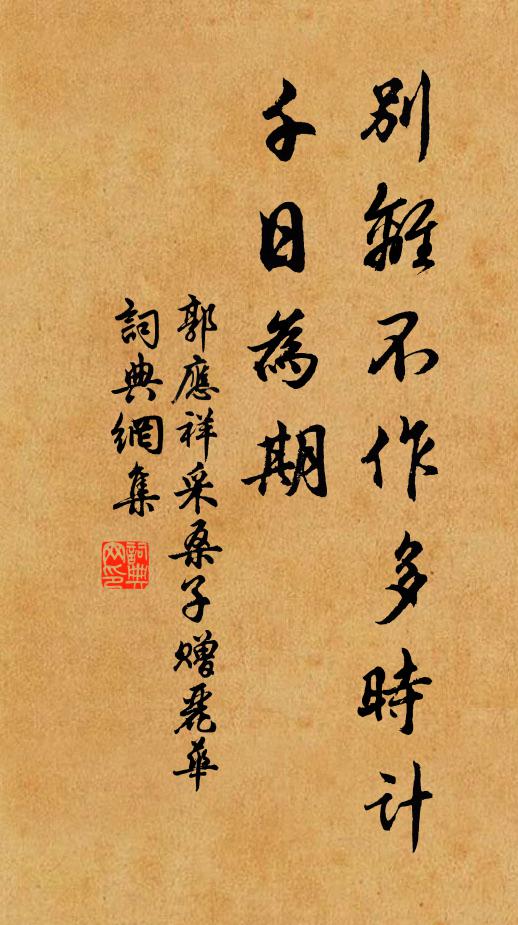 別離不作多時計
千日為期
郭應祥采桑子贈麗華
詞典網集
詞典網印